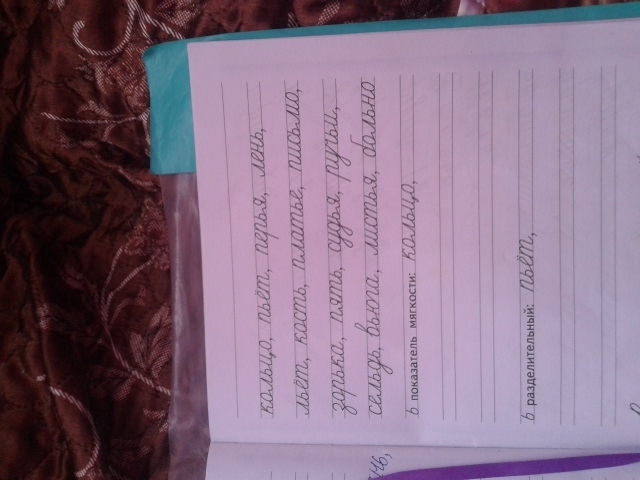 кольцо, пьёт, перья, лень,
льёт, кость, платье, письмо,
зорька, пять, судья, ручьи,
сельдь, вьюга, листья, больно
ь показатель мягкости: кольцо,
ь разделительный: пьёт,